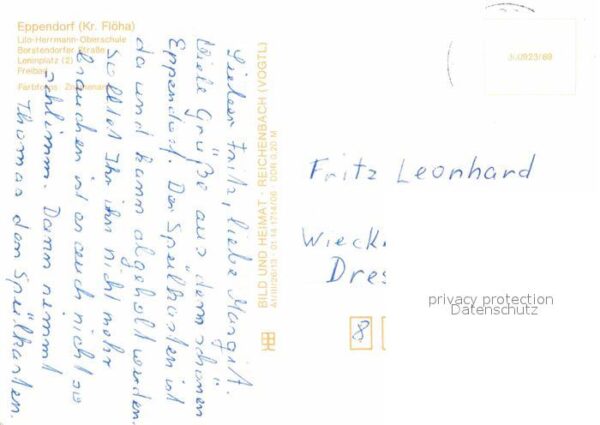 Eppendorf (Kr. Flöha)
Lilo-Herrmann-Oberschule
Borstendorfer Straße
Leninplatz (2)
Freibad
Farbfotos:
Lieber Fritz, liebe Margit.
Viele Grüße aus dem schönen
Eppendorf. Der Spülkasten ist
da und kann abgeholt werden.
Solltet Ihr ihn nicht mehr
brauchen ist es auch nicht so
schlimm. Dann nimmt
Thomas den Spülkasten.
BILD UND HEIMAT · REICHENBACH (VOGTL)
A1/III/26/13 · 01 14 1714/06 DDR 0,20 M
Fritz Leonhard
Wieck
Dres
8
privacy protection
Datenschutz